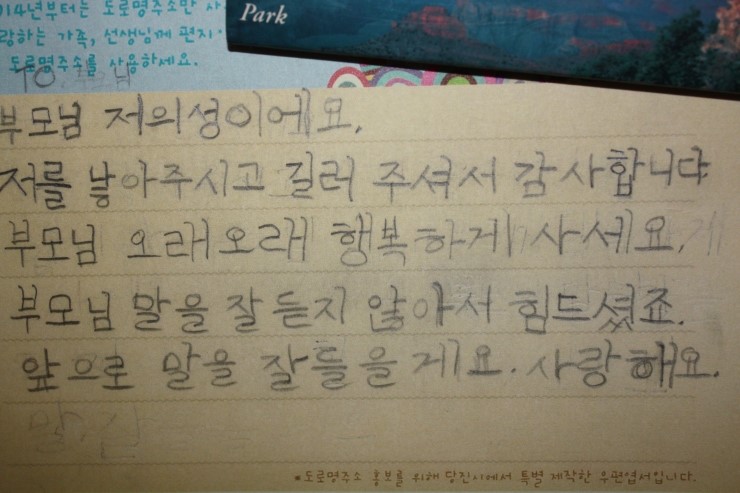 Park
14년부터는 도로명주소만 사
랑하는 가족, 선생님께 편지
도로명주소를 사용하세요.
TO.
부모님 저의성이에요.
저를 낳아주시고 길러 주셔서 감사합니다
부모님 오래오래 행복하게 사세요.
부모님 말을 잘 듣지 않아서 힘드셨죠.
앞으로 말을 잘들을게요. 사랑해요.
*도로명주소 홍보를 위해 당진시에서 특별 제작한 우편엽서입니다.